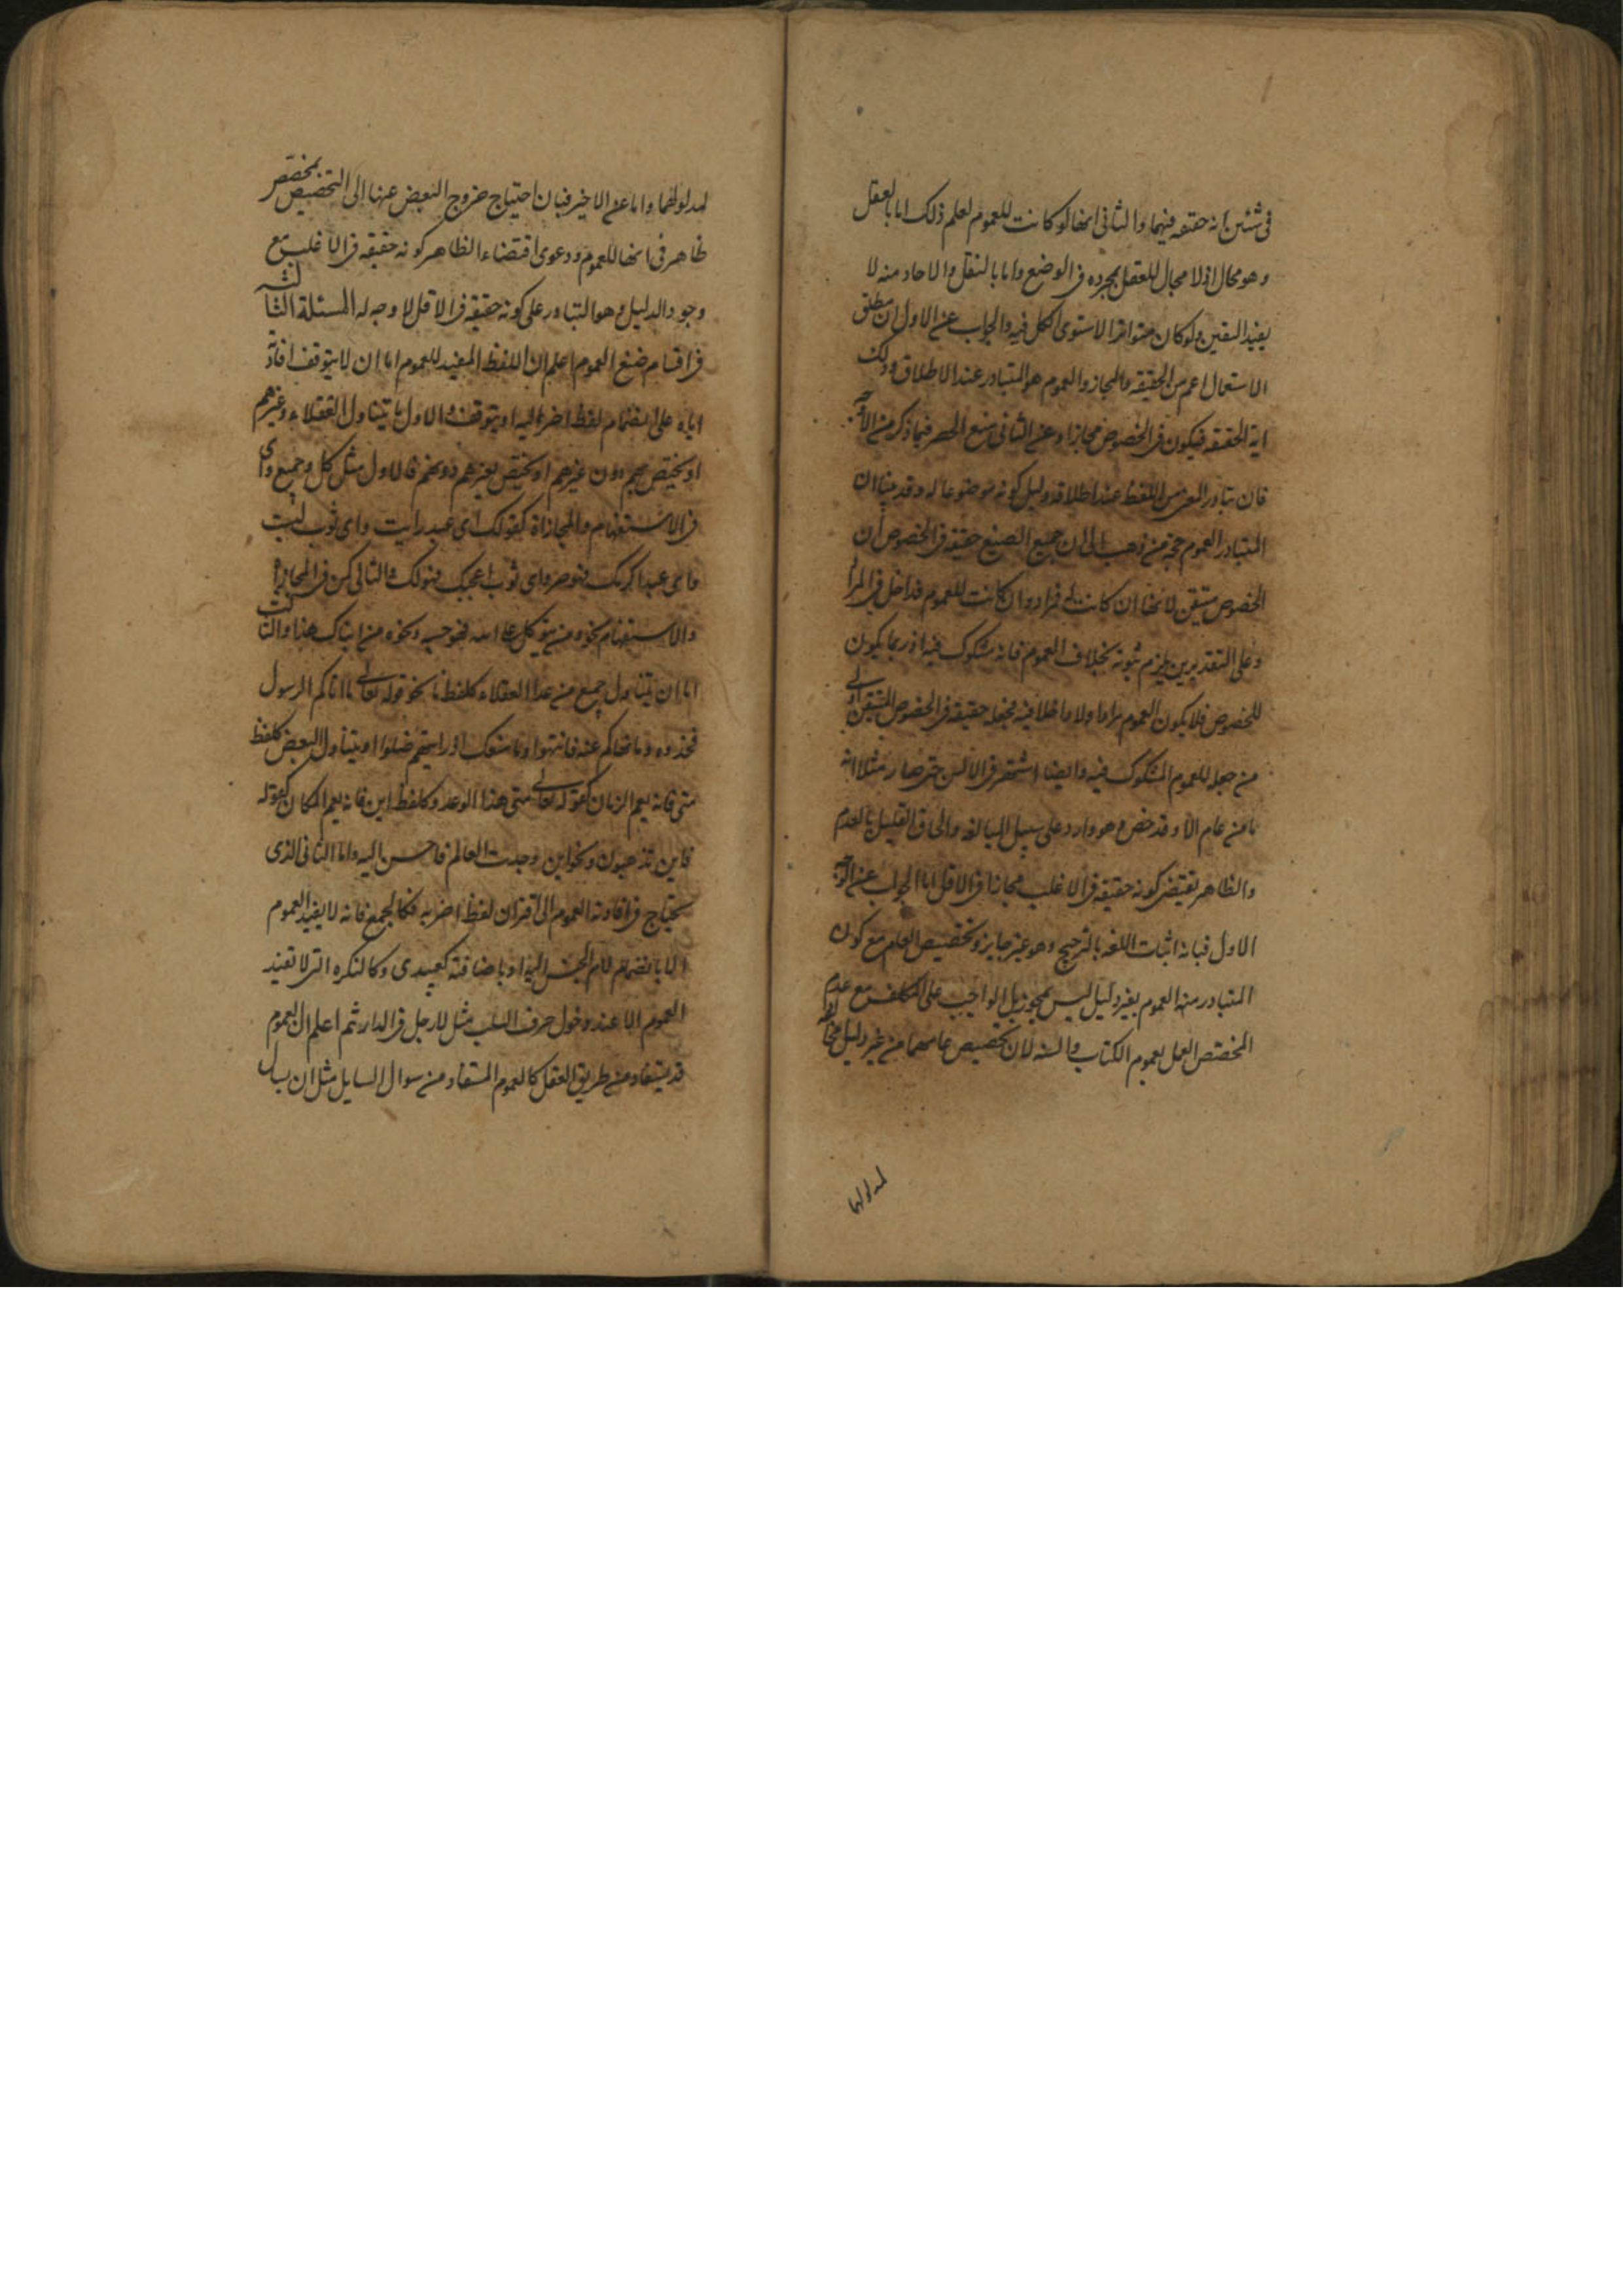 في شئين انه حقيقه فيهما والثاني انها لو كانت للعموم لعلم ذلك اما بالعقل
وهو محال اذ لا مجال للعقل بمجرده في الوضع واما بالنقل والاحاد منه لا
يفيد اليقين ولو كان متواترا لاستوى الكل فيه والجواب عن الاول ان مطلق
الاستعمال اعم من الحقيقه والمجاز والعموم هو المتبادر عند الاطلاق وذلك
اية الحقيقه فيكون في الخصوص مجازا وعن الثاني منع الحصر فيما ذكر من الاوجه
فان تبادر المعنى من اللفظ عند اطلاقه دليل كونه موضوعا له وقد بينا ان
المتبادر العموم حجة من ذهب الى ان جميع الصيغ حقيقه في الخصوص ان
الخصوص متيقن لانها ان كانت له فمراد وان كانت للعموم فداخل في المراد
وعلى التقديرين يلزم ثبوته بخلاف العموم فانه مشكوك فيه اذ ربما يكون
للخصوص فلا يكون العموم مرادا ولا داخلا فيه فجعله حقيقه في الخصوص المتيقن اولى
من جعله للعموم المشكوك فيه وايضا اشتهر في الالسن حتى صار مثلا انه
ما من عام الا وقد خص وهو وارد على سبيل المبالغه والحاق القليل بالعدم
والظاهر يقتضي كونه حقيقه في الاغلب مجازا في الاقل اما الجواب عن الوجه
الاول فبانه اثبات اللغه بالترجيح وهو غير جايز وتخصيص العام مع كون
المتبادر منه العموم بغير دليل ليس بمجوز بل الواجب على المكلف مع عدم
المخصص العمل بعموم الكتاب والسنه لان تخصيص عامهما من غير دليل مخالفه
لمدلولها
لمدلولهما واما عن الاخير فبان احتياج خروج البعض عنها الى التخصيص بمخصص
ظاهر في انها للعموم ودعوى اقتضاء الظاهر كونه حقيقه في الاغلب مع
وجود الدليل وهو التبادر على كونه حقيقة في الاقل لا وجه له المسئلة الثالثه
في اقسام صيغ العموم اعلم ان اللفظ المفيد للعموم اما ان لا يتوقف افادته
اياه على انضمام لفظ اخر اليه او يتوقف والاول ما يتناول العقلاء وغيرهم
او يختص بهم دون غيرهم او يختص بغيرهم دونهم فالاول مثل كل وجميع واي
في الاستفهام والمجازاة كقولك اي عبد رايت واي ثوب لبست
واي عبد اكرمك فهو حر واي ثوب اعجبك فهو لك والثاني كمن في المجازاة
والاستفهام نحو ومن يتوكل على الله فهو حسبه ونحوه من انباك هذا والثالث
اما ان يتناول جميع من عدا العقلاء كلفظ ما نحو قوله تعالى ما اتاكم الرسول
فخذوه وما نهاكم عنه فانتهوا وما منعك اذ رايتهم ضلوا او يتناول البعض كلفظ
متى فانه يعم الزمان كقوله تعالى متى هذا الوعد وكلفظ اين فانه يعم المكان كقوله
فاين تذهبون ونحو اين وجدت العالم فاحسن اليه واما الثاني الذي
يحتاج في افادته العموم الى اقتران لفظ اخر به فكالجمع فانه لا يفيد العموم
الا بانضمام لام الجنس اليه او باضافته كعبيدي وكالنكره التي لا تفيد
العموم الا عند دخول حرف السلب مثل لا رجل في الدار ثم اعلم ان العموم
قد يستفاد من طريق العقل كالعموم المستفاد من سوال السايل مثل ان يسال